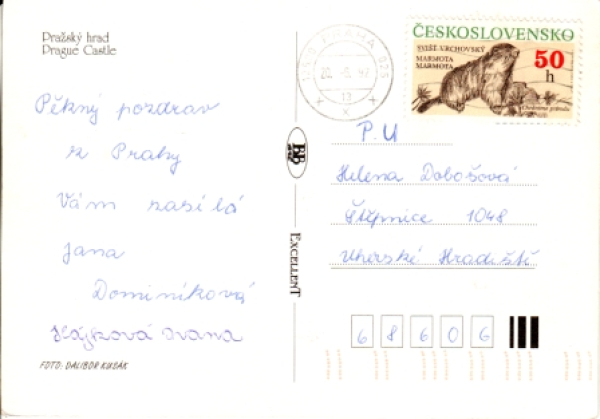 Pražský hrad
Prague Castle
Pěkný pozdrav
z Prahy
Vám zasílá
Jana
Dominiková
Hájková Ivana
FOTO: DALIBOR KUSÁK
BB
EXCELLENT
PRAHA 025
ČESKOSLOVENSKO
SVIŠŤ VRCHOVSKÝ
MARMOTA
MARMOTA
50
h
P. U
Helena Dobošová
Štěpnice 1048
Uherské Hradiště
6 8 6 0 6